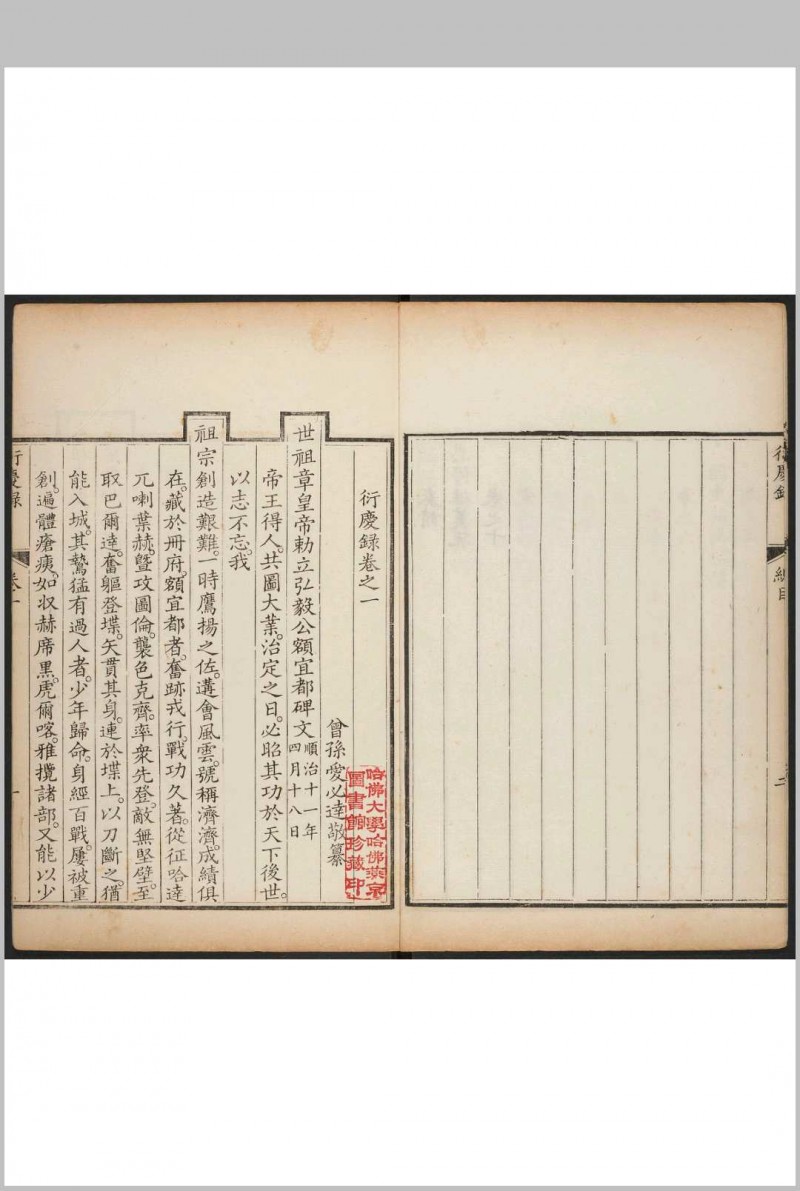 總目
二
衍慶錄卷之一
曾孫愛必達敬纂
哈佛大學哈佛燕京
圖書館珍藏印
世祖章皇帝勅立弘毅公額宜都碑文順治十一年
四月十八日
帝王得人。共圖大業。治定之日。必昭其功於天下後世。
以志不忘。我
祖宗創造艱難。一時鷹揚之佐。遘會風雲。號稱濟濟。成績俱
在。藏於冊府。額宜都者。奮跡戎行。戰功久著。從征哈達
兀喇葉赫。暨攻圖倫。襲色克齊。率衆先登。敵無堅壁。至
取巴爾達。奮軀登堞。矢貫其身。連於堞上。以刀斷之。猶
能入城。其鷙猛有過人者。少年歸命。身經百戰。屢被重
創。遍體瘡痍。如収赫席黑。虎爾喀。雅攬諸部。又能以少
衍慶錄
卷一
一